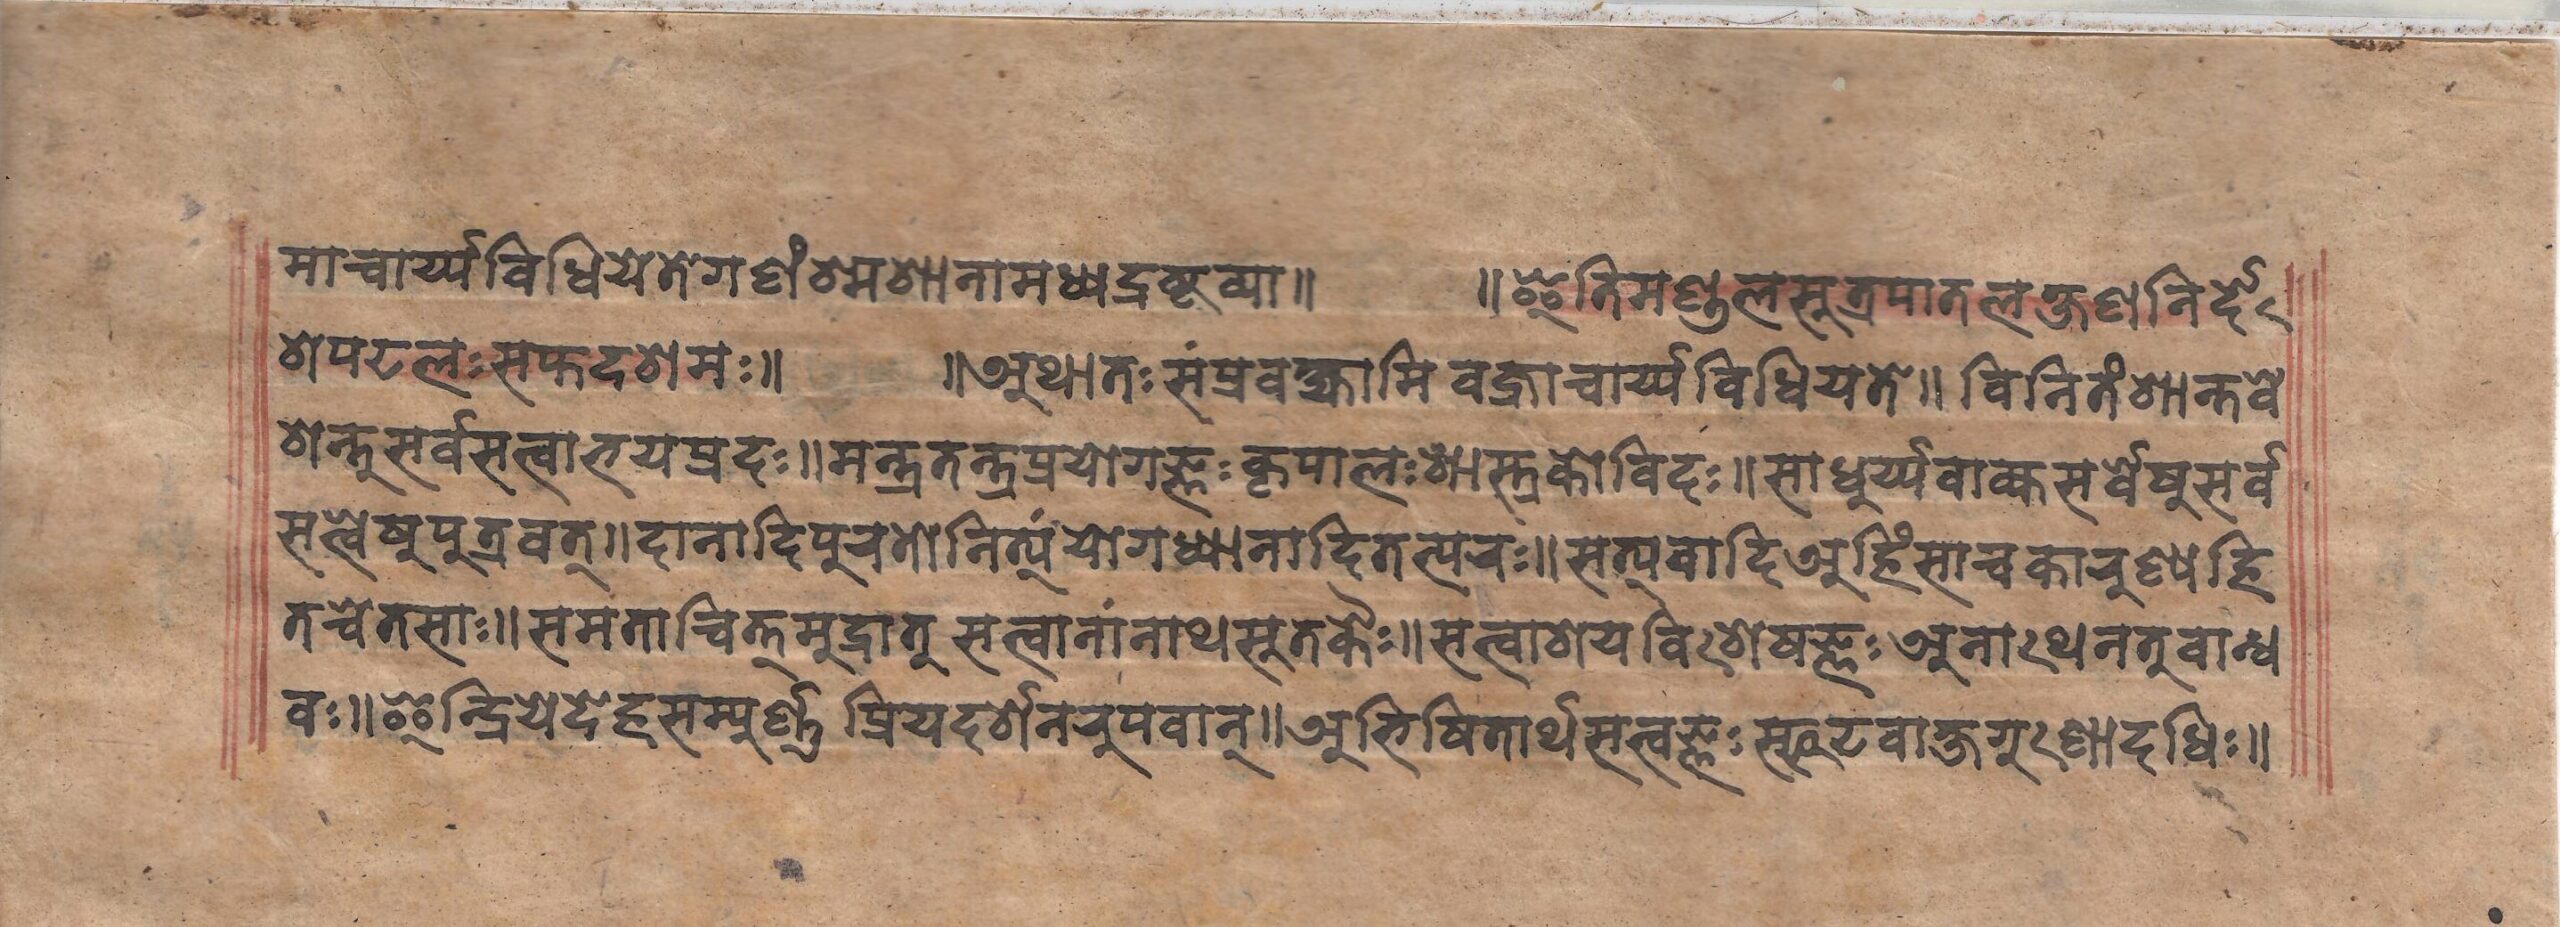 माचार्य्यविधियेतेगणंश्मशानामध्यद्रष्टव्या॥ ॥इतिमण्डलसूत्रपातलक्षणनिर्दे
शपटलःसप्तदशमः॥ ॥अथातःसंप्रवक्ष्यामि वज्राचार्य्यविधियते॥ विनितंशान्तवे
शन्तुसर्वसत्वाभयप्रदः॥मन्त्रतन्त्रप्रयोगज्ञःकृपालःशास्त्रकोविदः॥साधुर्य्यवाक्यसर्वेषुसर्व
सत्वेषुपुत्रवत्॥दानादिपुरतोनित्यंयोगध्यानादितत्परः॥सत्यवादिअहिंसाचकारुण्यहि
तचेतसाः॥समताचित्तमुद्रातु सत्वानांनाथसुतकैः॥सत्वाशयविशेषज्ञःअनाथनतुवान्ध
वः॥इन्द्रियेदेहसम्पुर्ण्ण प्रियदर्शनरुपवान्॥अभिषितार्थसत्वज्ञःस्फुटवाक्तगुणादधिः॥